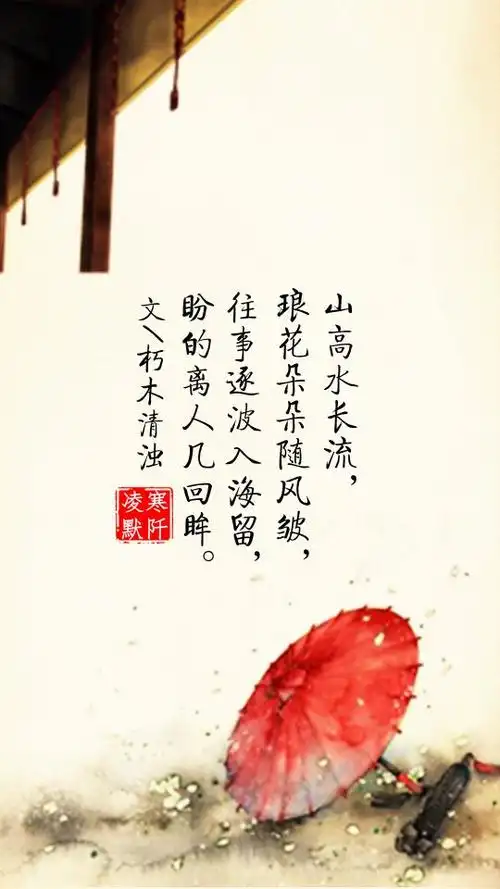 山高水长流，
琅花朵朵随风皱，
往事逐波入海留，
盼的离人几回眸。
文\朽木清浊
寒阡
凌默